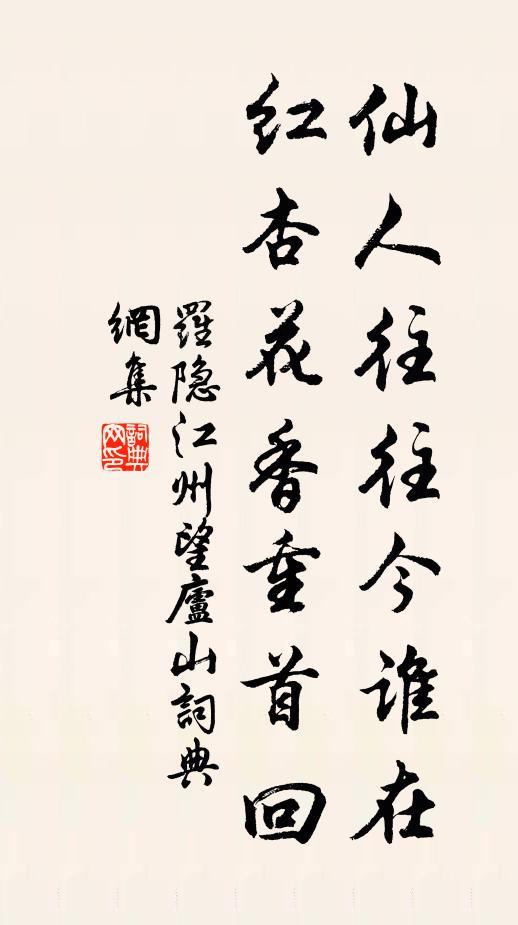 仙人往往今誰在
紅杏花香重首回
羅隐江州望廬山詞典
網集
詞典
网印